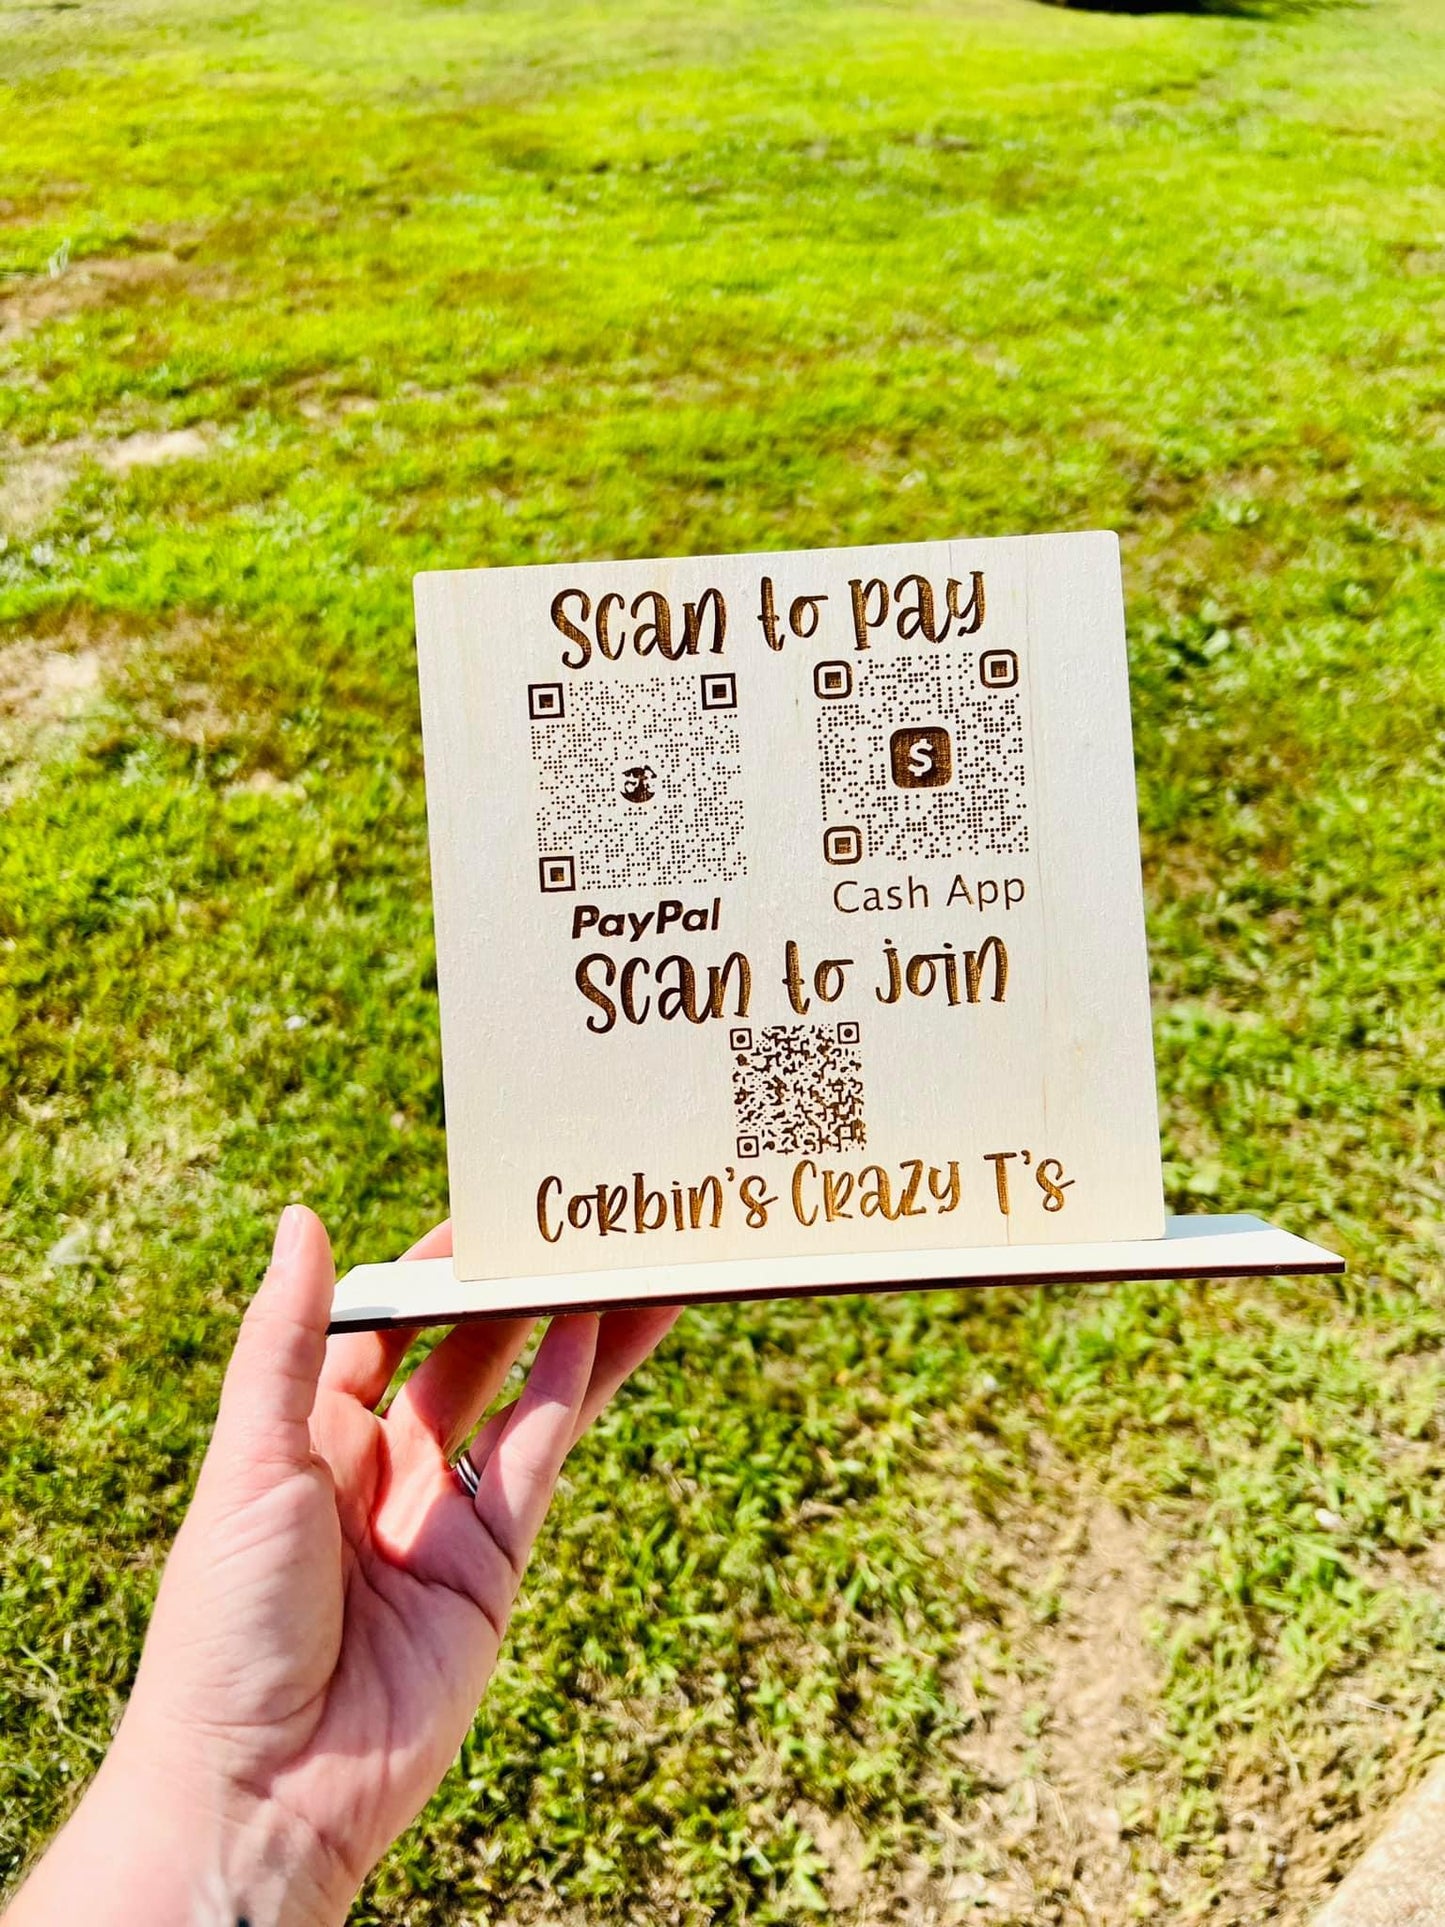 Scan to pay
$
PayPal
Cash App
Scan to join
Corbin's Crazy T's